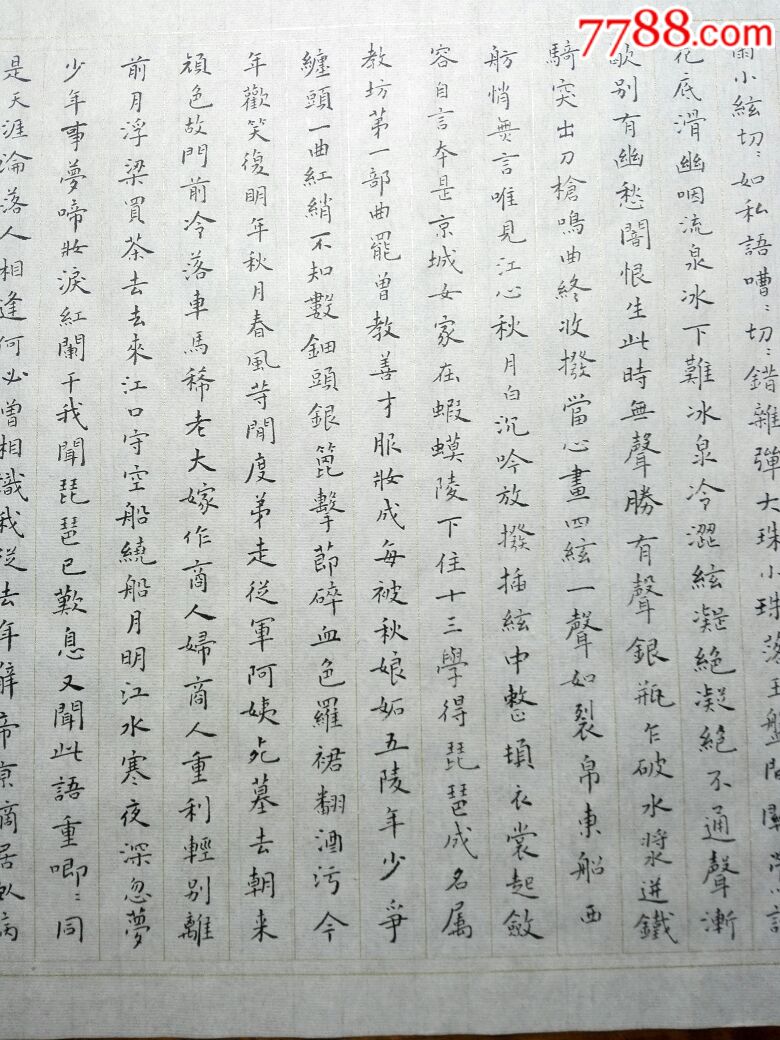 7788.com
雨小絃切〻如私語嘈〻切〻錯雜彈大珠小珠落玉盤間關鶯語
花底滑幽咽流泉冰下難冰泉冷澀絃凝絕凝絕不通聲漸
歇別有幽愁闇恨生此時無聲勝有聲銀瓶乍破水漿迸鐵
騎突出刀槍鳴曲終收撥當心畫四絃一聲如裂帛東船西
舫悄無言唯見江心秋月白沉吟放撥插絃中整頓衣裳起斂
容自言本是京城女家在蝦蟆陵下住十三學得琵琶成名属
教坊苐一部曲罷曾教善才服妝成每被秋娘妬五陵年少爭
纏頭一曲紅綃不知數鈿頭銀篦擊節碎血色羅裙翻酒污今
年歡笑復明年秋月春風等閒度弟走從軍阿姨死墓去朝来
顔色故門前冷落車馬稀老大嫁作商人婦商人重利輕別離
前月浮梁買茶去去來江口守空船繞船月明江水寒夜深忽夢
少年事夢啼妝淚紅闌干我聞琵琶已歎息又聞此語重唧〻同
是天涯淪落人相逢何必曾相識我從去年辭帝京謫居臥病